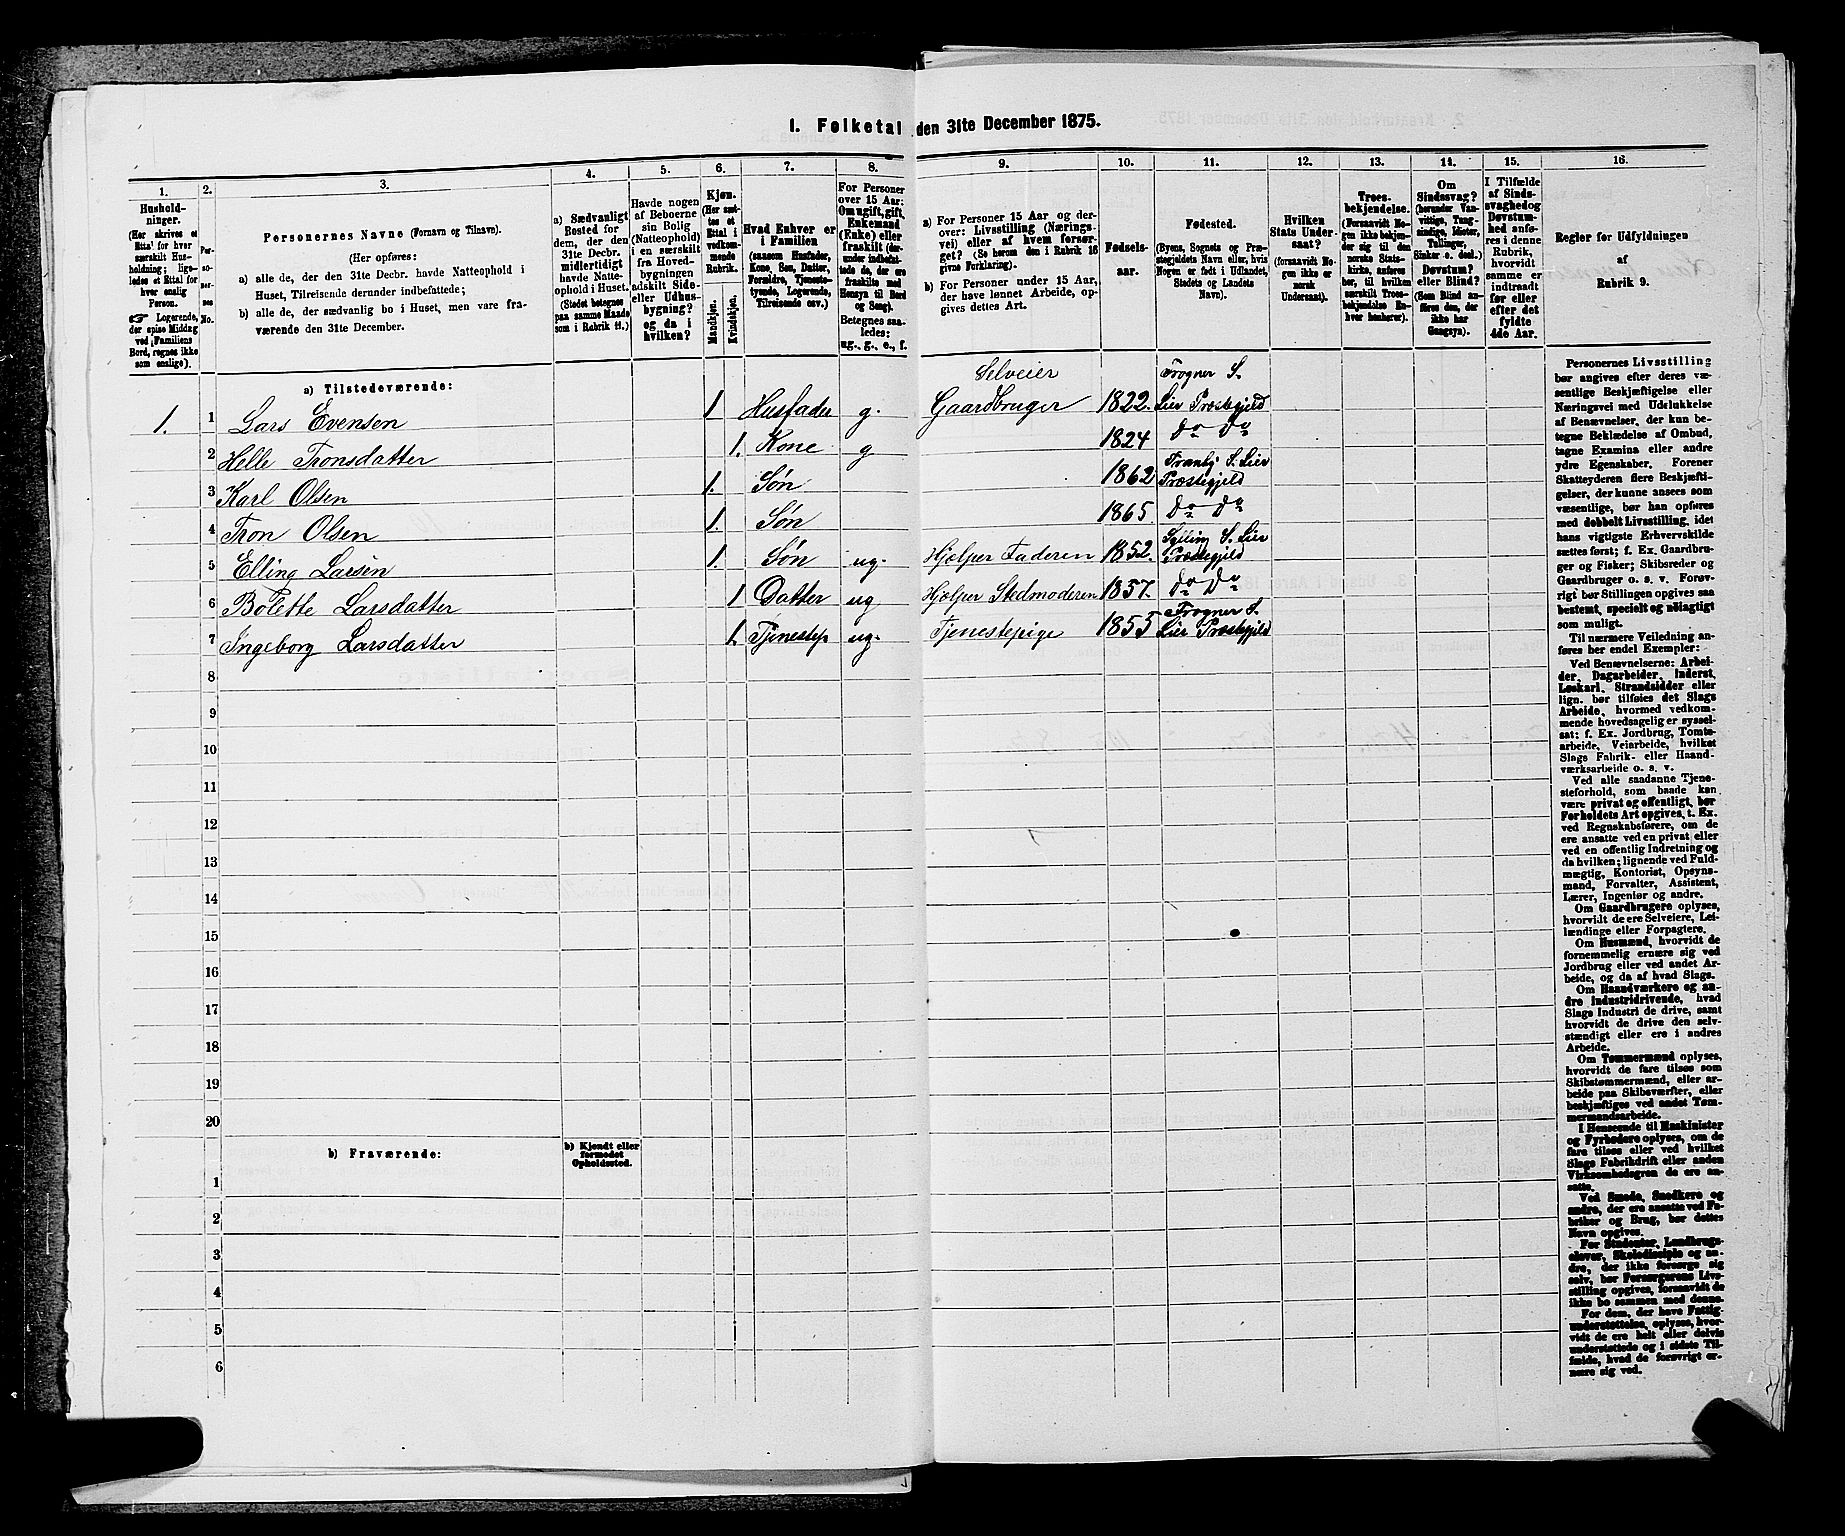 1. Folketal den 31te December 1875.
1. 2. 3. 4. 5. 6. 7. 8. 9. 10. 11. 12. 13. 14. 15. 16.
Hushold-
ninger.
(Her skrives et
Ettal for hver
særskilt Hus-
holdning; lige-
ledes et Ettal for
hver enslig
Person.
☞ Logerende,
der spise Middag
ved Familiens
Bord, regnes ikke
som enslige).
Per-
so-
ner-
nes
No.
Personernes Navne (Fornavn og Tilnavn).
(Her opføres:
a) alle de, der den 31te Decbr. havde Natteophold i
Huset, Tilreisende derunder indbefattede;
b) alle de, der sædvanlig bo i Huset, men vare fra-
værende den 31te December.
a) Sædvanligt
Bosted for
dem, der den
31te Decbr.
midlertidigt
havde Natte-
ophold i Huset.
(Stedet betegnes
paa samme Maade
som i Rubrik 11.)
Havde nogen
af Beboerne
sin Bolig
(Natteophold)
i en særskilt
fra Hoved-
bygningen
adskilt Side-
eller Udhus-
bygning?
og da i
hvilken?
Kjøn.
(Her sæt-
tes et
Ettal i
vedkom-
mende
Rubrik.
Mandkjøn.
Kvindekjøn.
Hvad Enhver er
i Familien
(saasom Husfader,
Kone, Søn, Datter,
Forældre, Tjeneste-
tyende, Logerende,
Tilreisende osv.)
For Personer
over 15 Aar:
Om ugift, gift,
Enkemand
(Enke) eller
fraskilt (der-
under indbefat-
tede de, der ere
fraskilte med
Hensyn til Bord
og Seng).
Betegnes saa-
ledes:
ug., g., e., f.
a) For Personer 15 Aar og der-
over: Livsstilling (Nærings-
vei) eller af hvem forsør-
get? (Se herom den i Rubrik 16
givne Forklaring).
b) For Personer under 15 Aar,
der have lønnet Arbeide, op-
gives dettes Art.
Fødsels-
aar.
Fødested.
(Byens, Sognets og Præ-
stegjeldets Navn eller, hvis
Nogen er født i Udlandet,
Stedets og Landets
Navn).
Hvilken
Stats Under-
saat?
(forsaavidt No-
gen ikke er
norsk
Undersaat).
Troes-
bekjendelse.
(Forsaavidt No-
gen ikke bekjen-
der sig til den
norske Stats-
kirke, anføres
her, til hvilken
særskilt Troes-
bekjendelse En-
hver henhører).
Om
Sindssvag?
(herunder Van-
vittige, Tung-
sindige, Idioter,
Tullinger,
Sinker o. desl.)
Døvstum?
eller Blind?
(Som Blind an-
føres den, der
ikke har
Gangsyn).
I Tilfælde
af Sinds-
svaghed og
Døvstum-
hed anfø-
res i denne
Rubrik,
hvorvidt
samme er
indtraadt
før eller
efter det
fyldte
4de Aar.
Regler for Udfyldningen
af
Rubrik 9.
a) Tilstedeværende:
Selveier Frogner S.
1. 1 Lars Evensen 1 Husfader g. Gaardbruger 1822. Lier Præstegjeld
2 Helle Tronsdatter 1. Kone g 1824 Do Do
Tranby S. Lier
3 Karl Olsen 1. Søn 1862 Præstegjeld
4 Tron Olsen 1. Søn 1865 Do Do
Sylling S. Lier
5 Elling Larsen 1. Søn ug. Hjælper Faderen 1852. Præstegjeld
6 Bolette Larsdatter 1 Datter ug Hjælper Stedmoderen 1857. Do Do
Frogner S.
7 Ingeborg Larsdatter 1. Tjenestep ug. Tjenestepige 1855 Lier Præstegjeld
8
9
10
11
12
13
14
15
16
17
18
19
20
b) Fraværende:
b) Kjendt eller
formodet
Opholdssted.
1
2
3
4
5
6
Personernes Livsstilling
bør angives efter deres væ-
sentlige Beskjæftigelse eller
Næringsvei med Udelukkelse
af Benævnelser, der kun be-
tegne Beklædelse af Ombud,
tagne Examina eller andre
ydre Egenskaber. Forener
Skatteyderen flere Beskjæfti-
gelser, der kunne ansees som
væsentlige, bør han opføres
med dobbelt Livsstilling, idet
hans vigtigste Erhvervskilde
sættes først; f. Ex. Gaardbru-
ger og Fisker; Skibsreder og
Gaardbruger o. s. v. Forøv-
rigt bør Stillingen opgives saa
bestemt, specielt og nøiagtigt
som muligt.
Til nærmere Veiledning an-
føres her endel Exempler:
Ved Benævnelserne: Arbei-
der, Dagarbeider, Inderst,
Løskarl, Strandsidder eller
lign. bør tilføies det Slags
Arbeide, hvormed vedkom-
mende hovedsagelig er syssel-
sat: f. Ex. Jordbrug, Tomte-
arbeide, Veiarbeide, hvilket
Slags Fabrik- eller Haand-
værksarbeide o. s. v.
Ved alle saadanne Tjene-
steforhold, som baade kan
være privat og offentligt, bør
Forholdets Art opgives, t. Ex.
ved Regnskabsførere, om de
ere ansatte ved en privat eller
ved en offentlig Indretning og
da hvilken; lignende ved Fuld-
mægtig, Kontorist, Opsyns-
mand, Forvalter, Assistent,
Lærer, Ingeniør og andre.
Om Gaardbrugere oplyses,
hvorvidt de ere Selveiere, Lei-
lændinge eller Forpagtere.
Om Husmænd, hvorvidt de
fornemmelig ernære sig ved
Jordbrug eller ved andet Ar-
beide, og da af hvad Slags.
Om Haandværkere og an-
dre Industridrivende, hvad
Slags Industri de drive, samt
hvorvidt de drive den selv-
stændigt eller ere i andres
Arbeide.
Om Tømmermænd oplyses,
hvorvidt de fare tilsøs som
Skibstømmermænd, eller ar-
beide paa Skibsværfter, eller
beskjæftiges ved andet Tøm-
mermandsarbeide.
I Henseende til Maskinister
og Fyrbødere oplyses, om de
fare tilsøs eller ved hvilket
Slags Fabrikdrift eller anden
Virksomhedsgren de ere an-
satte.
Ved Smede, Snedkere og
andre, der ere ansatte ved Fa-
briker og Brug, bør dettes
Navn opgives.
For Studenter, Landbrugs-
elever, Skoledisciple og an-
dre, der ikke forsørge sig
selv, bør Forsørgerens Livs-
stilling opgives, forsaavidt de
ikke bo sammen med denne.
For dem, der have Fattig-
understøttelse, oplyses, hvor-
vidt de ere helt eller delvis
understøttede og i sidste Til-
fælde, hvad de forøvrigt er-
nære sig ved.